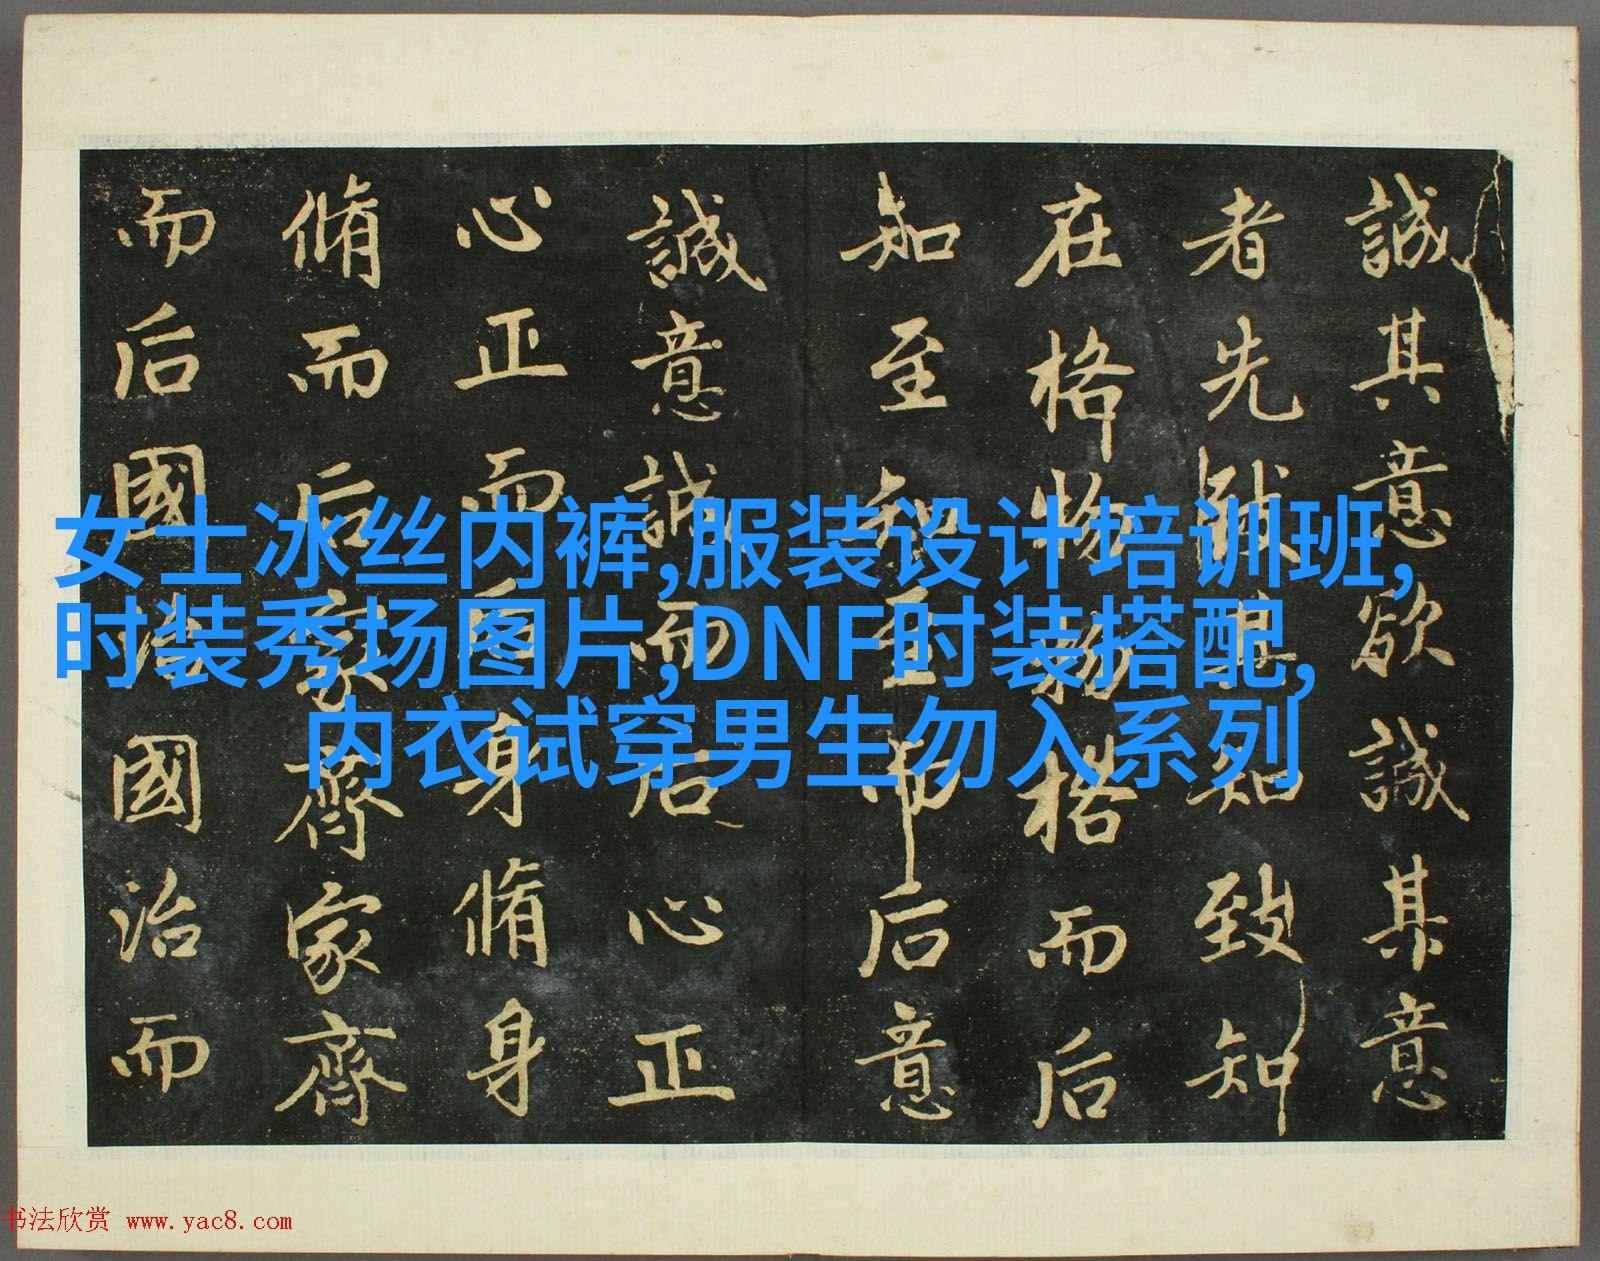 誠其意欲誠其意
者先致其知致知
在格物物格而后
知至知至而后意
誠意誠而后心正
心正而后身脩身
脩而后家齊家齊
而后國治國治而
女士冰丝内裤,服装设计培训班,
时装秀场图片,DNF时装搭配,
内衣试穿男生勿入系列
书法欣赏 www.yac8.com